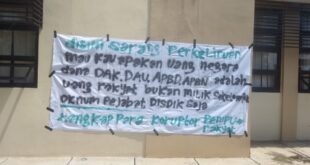 disini Sarang Perkeliruan
mau kAu apakan uang negara
dana DAK, DAU, APBD, APBN adalah
uang rakyat bukan MILIK Sekelompok
OKnum Pejabat DISDIK Saja
Tangkap Para Koruptor Penipu
rakyat